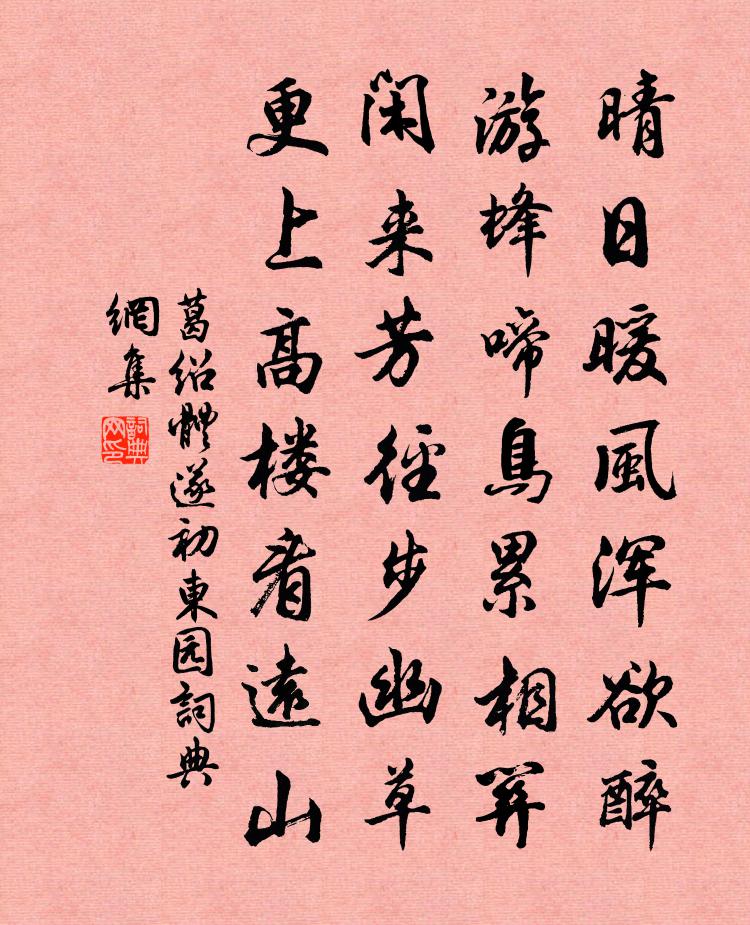 晴日暖風浑欲醉
游蜂啼鳥累相關
閑来芳徑步幽草
更上高楼看遠山
葛绍體遂初東园詞典
網集
詞典
网印